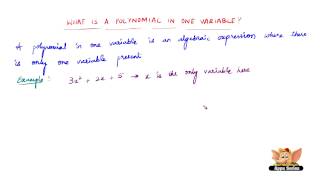 WHAT IS A POLYNOMIAL IN ONE VARIABLE?
A polynomial in one variable is an algebraic expression where there
is only one variable present
Example: 3x² + 2x + 5 → x is the only variable here
Appu Series